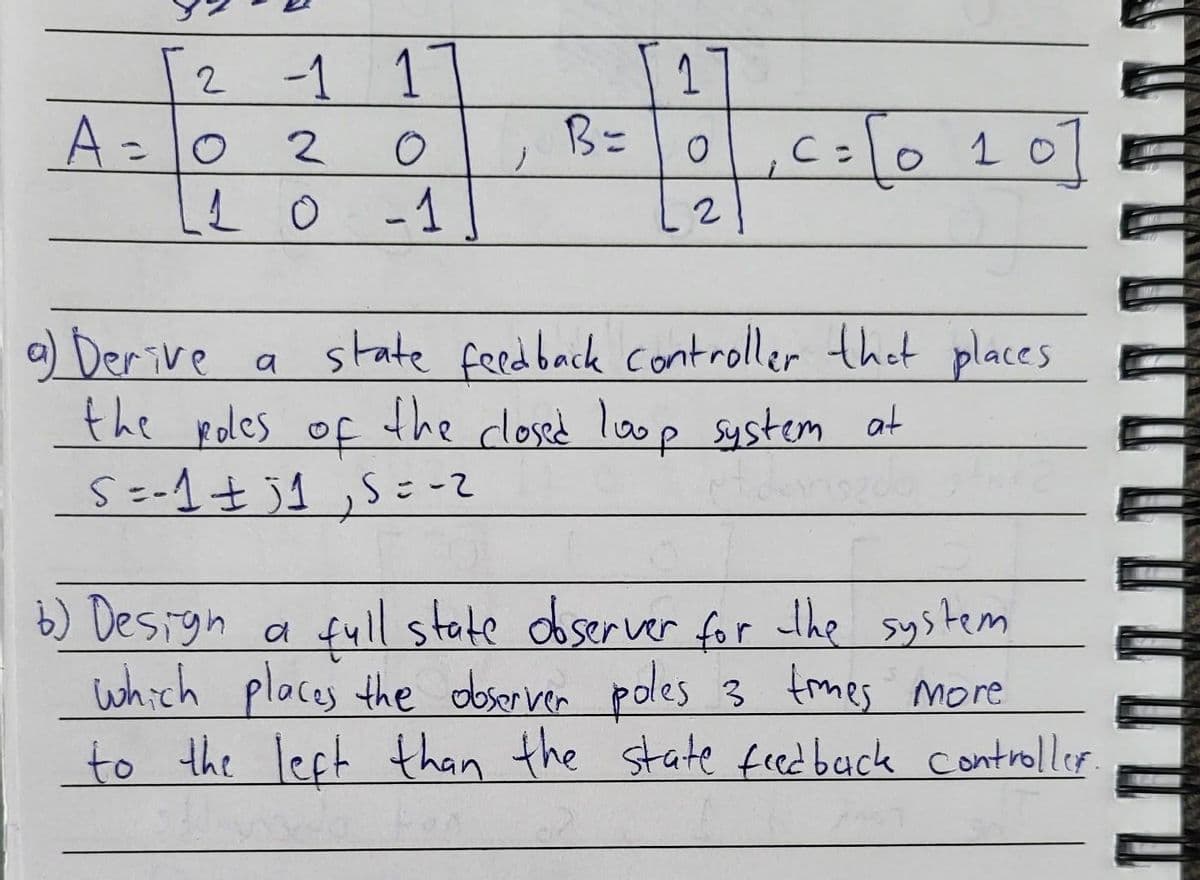 A = [2 -1 1; 0 2 0; 1 0 -1], B = [1; 0; 2], C = [0 1 0]
a) Derive a state feedback controller that places
the poles of the closed loop system at
S = -1 ± j1, S = -2
b) Design a full state observer for the system
which places the observer poles 3 times more
to the left than the state feedback controller.